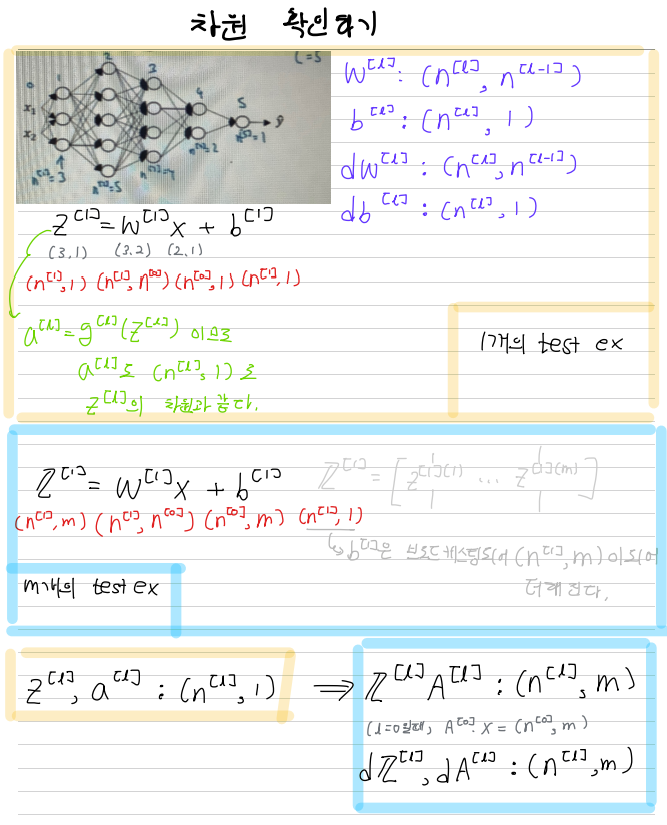 차원 확인하기
L=5
0 1 2 3 4 5
x₁
x₂
ŷ
n^[1]=3 n^[2]=5 n^[3]=4 n^[4]=2 n^[5]=1
W^[l] : (n^[l], n^[l-1])
b^[l] : (n^[l], 1)
dW^[l] : (n^[l], n^[l-1])
db^[l] : (n^[l], 1)
Z^[1] = W^[1]x + b^[1]
(3,1) (3,2) (2,1)
(n^[1],1) (n^[1],n^[0]) (n^[0],1) (n^[1],1)
a^[l] = g^[l](Z^[l]) 이므로
a^[l]도 (n^[l],1)로
Z^[l]의 차원과 같다.
1개의 test ex
Z^[1] = W^[1]X + b^[1]
Z^[1] = [Z^[1](1) ... Z^[1](m)]
(n^[1],m) (n^[1],n^[0]) (n^[0],m) (n^[1],1)
↳ b^[1]은 브로드캐스팅되어 (n^[1],m)이 되어
더해진다.
m개의 test ex
Z^[l], a^[l] : (n^[l], 1) ⇒ Z^[l] A^[l] : (n^[l], m)
(l=0일때, A^[0]: X = (n^[0], m)
dZ^[l], dA^[l] : (n^[l], m)